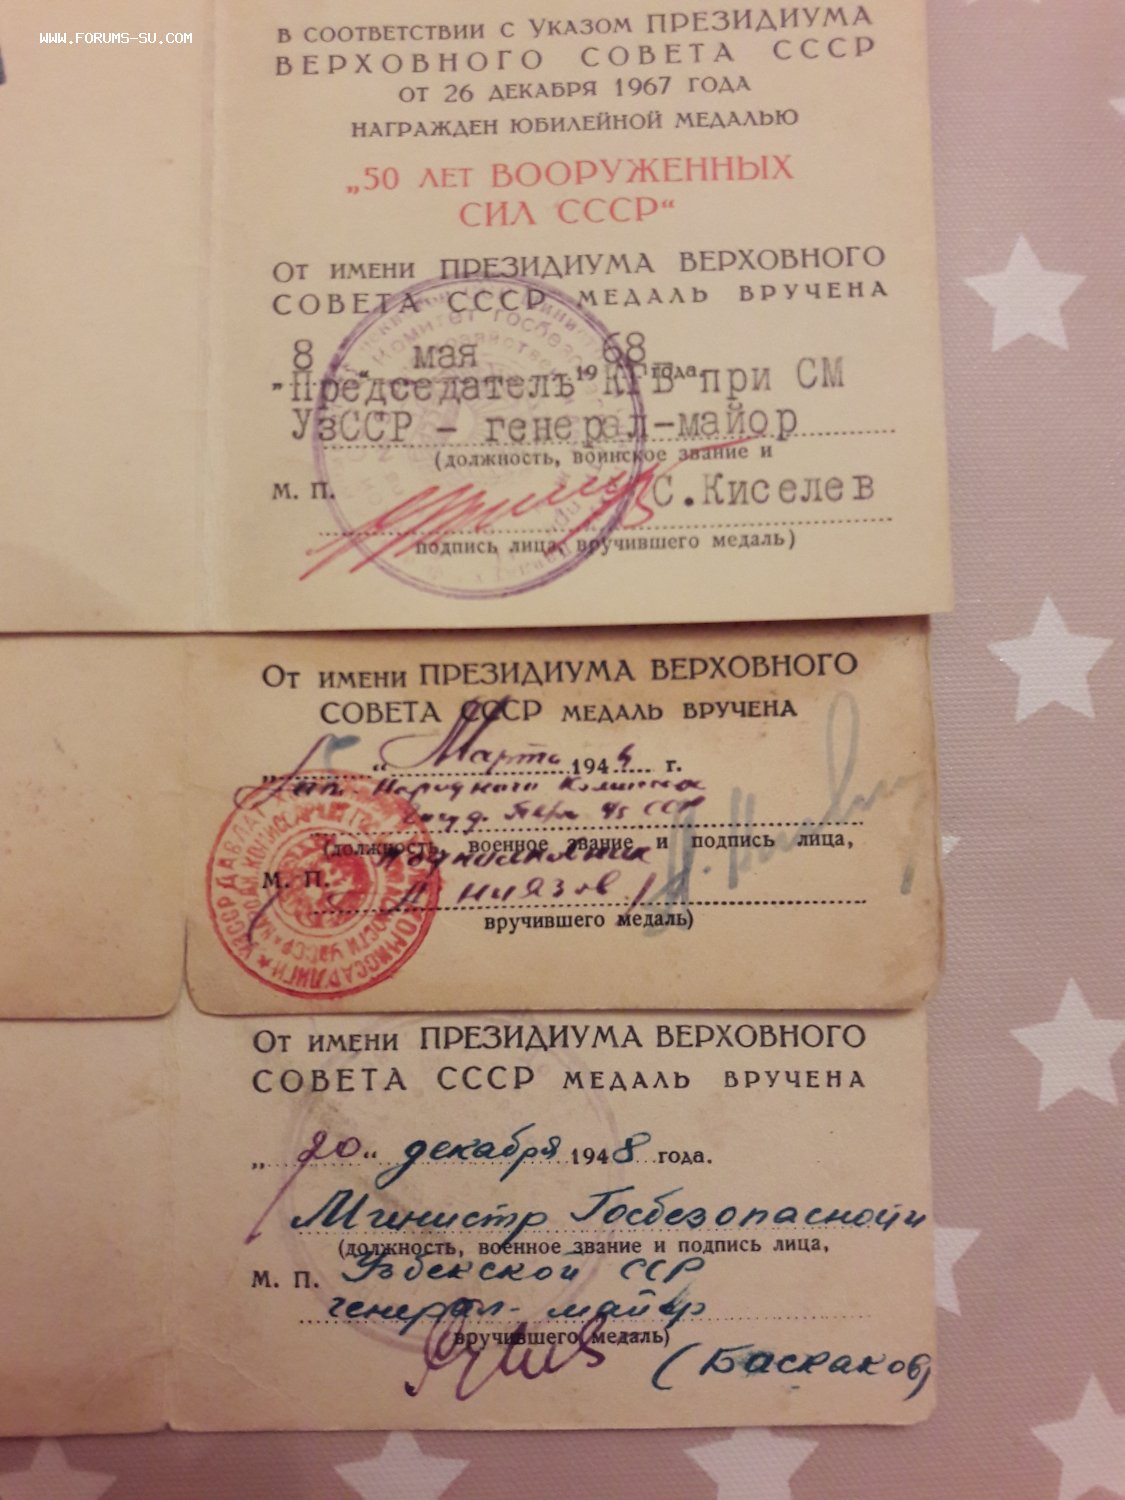 www.forums-su.com
В СООТВЕТСТВИИ С УКАЗОМ ПРЕЗИДИУМА
ВЕРХОВНОГО СОВЕТА СССР
ОТ 26 ДЕКАБРЯ 1967 ГОДА
НАГРАЖДЕН ЮБИЛЕЙНОЙ МЕДАЛЬЮ
„50 ЛЕТ ВООРУЖЕННЫХ
СИЛ СССР“
ОТ ИМЕНИ ПРЕЗИДИУМА ВЕРХОВНОГО
СОВЕТА СССР МЕДАЛЬ ВРУЧЕНА
8 мая 1968 года.
Председатель КГБ при СМ
УзССР - генерал-майор
(должность, воинское звание и
М. П. С.Киселев
подпись лица, вручившего медаль)
ОТ ИМЕНИ ПРЕЗИДИУМА ВЕРХОВНОГО
СОВЕТА СССР МЕДАЛЬ ВРУЧЕНА
„ “ Марта 1944 г.
Народного
СССР
(должность, военное звание и подпись лица,
М. П. Ниязов
вручившего медаль)
ОТ ИМЕНИ ПРЕЗИДИУМА ВЕРХОВНОГО
СОВЕТА СССР МЕДАЛЬ ВРУЧЕНА
„20“ декабря 1948 года.
Министр Госбезопасности
(должность, военное звание и подпись лица,
М. П. Узбекской ССР
генерал-майор
вручившего медаль)
(Баскаков)